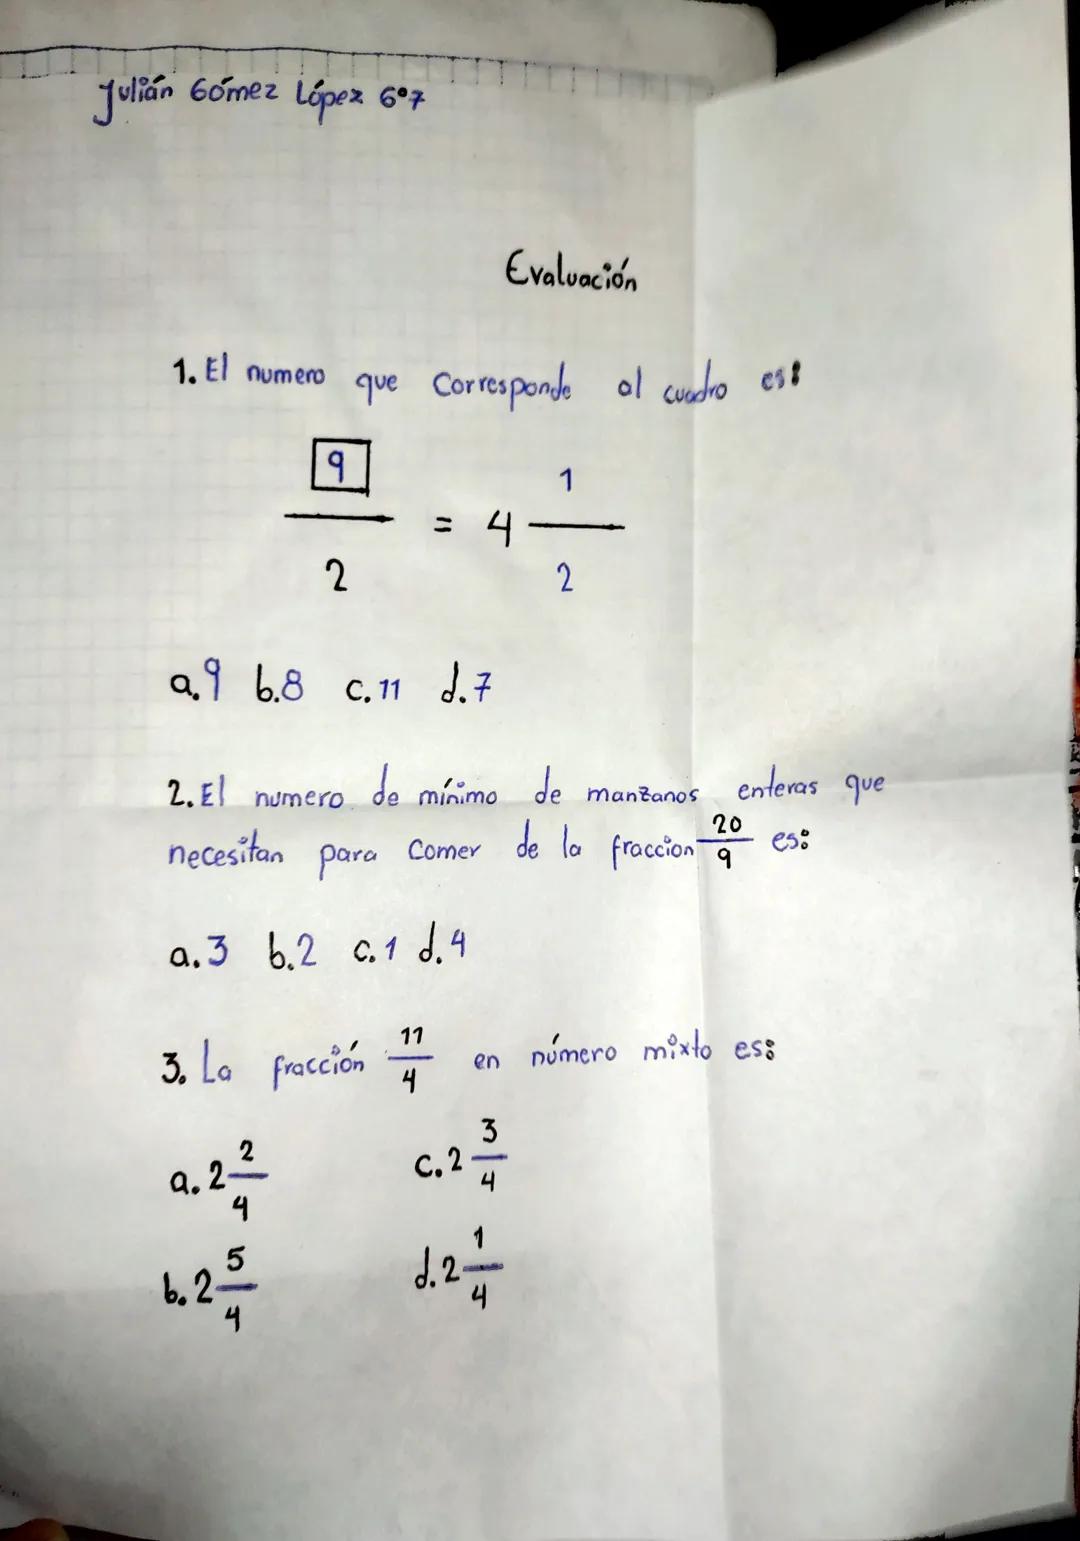 Julián Gómez López 6°7
Evaluación
1. El numero que corresponde al cuadro es:
9/2 = 4 1/2
a. 9 b. 8 c. 11 d. 7
2. El numero de mínimo de manzanas enteras que
necesitan para comer de la fraccion 20/9 es:
a. 3 b. 2 c. 1 d. 4
3. La fracción 11/4 en número mixto es:
a. 2 2/4 c. 2 3/4
b. 2 5/4 d. 2 1/4